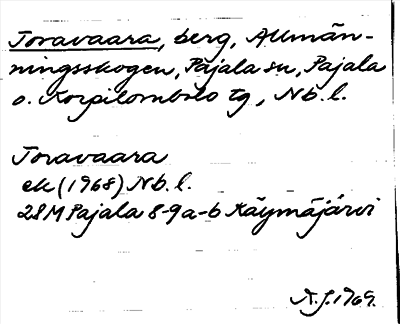 Toravaara, berg, Allmän-
ningsskogen, Pajala sn, Pajala
o. Korpilombolo tg, Nb. l.
Toravaara
ek (1968) Nb. l.
28M Pajala 8-9 a-b Käymäjärvi
A.J. 1969.